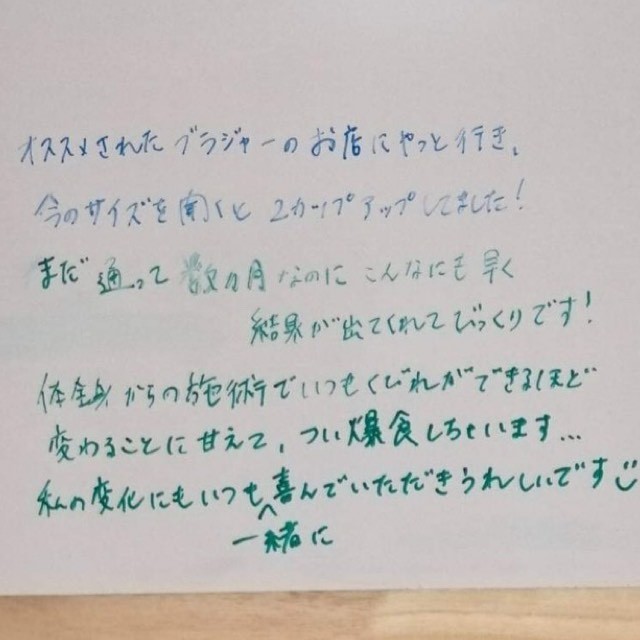 オススメされたブラジャーのお店にやっと行き、
今のサイズを聞くと2カップアップしてました!
まだ通って数カ月なのにこんなにも早く
結果が出てくれてびっくりです!
体全身からの施術でいつもくびれができるほど
変わることに甘えて、つい爆食しちゃいます…
私の変化にもいつも一緒に喜んでいただきうれしいです